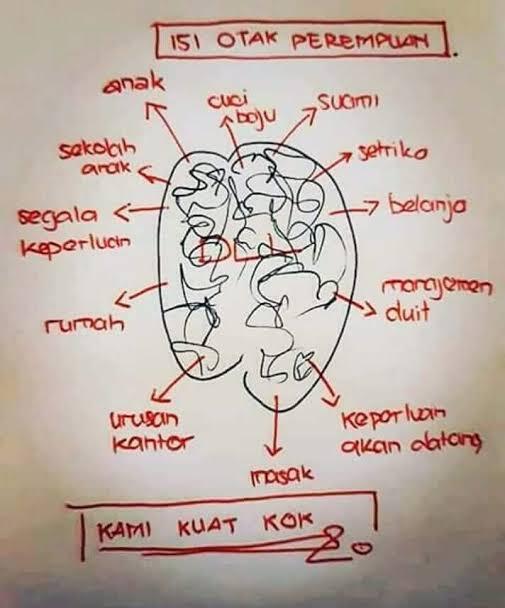 ISI OTAK PEREMPUAN.
anak
cuci
baju
suami
sekolah
anak
setrika
segala
keperluan
belanja
rumah
manajemen
duit
urusan
kantor
keperluan
akan datang
masak
KAMI KUAT KOK